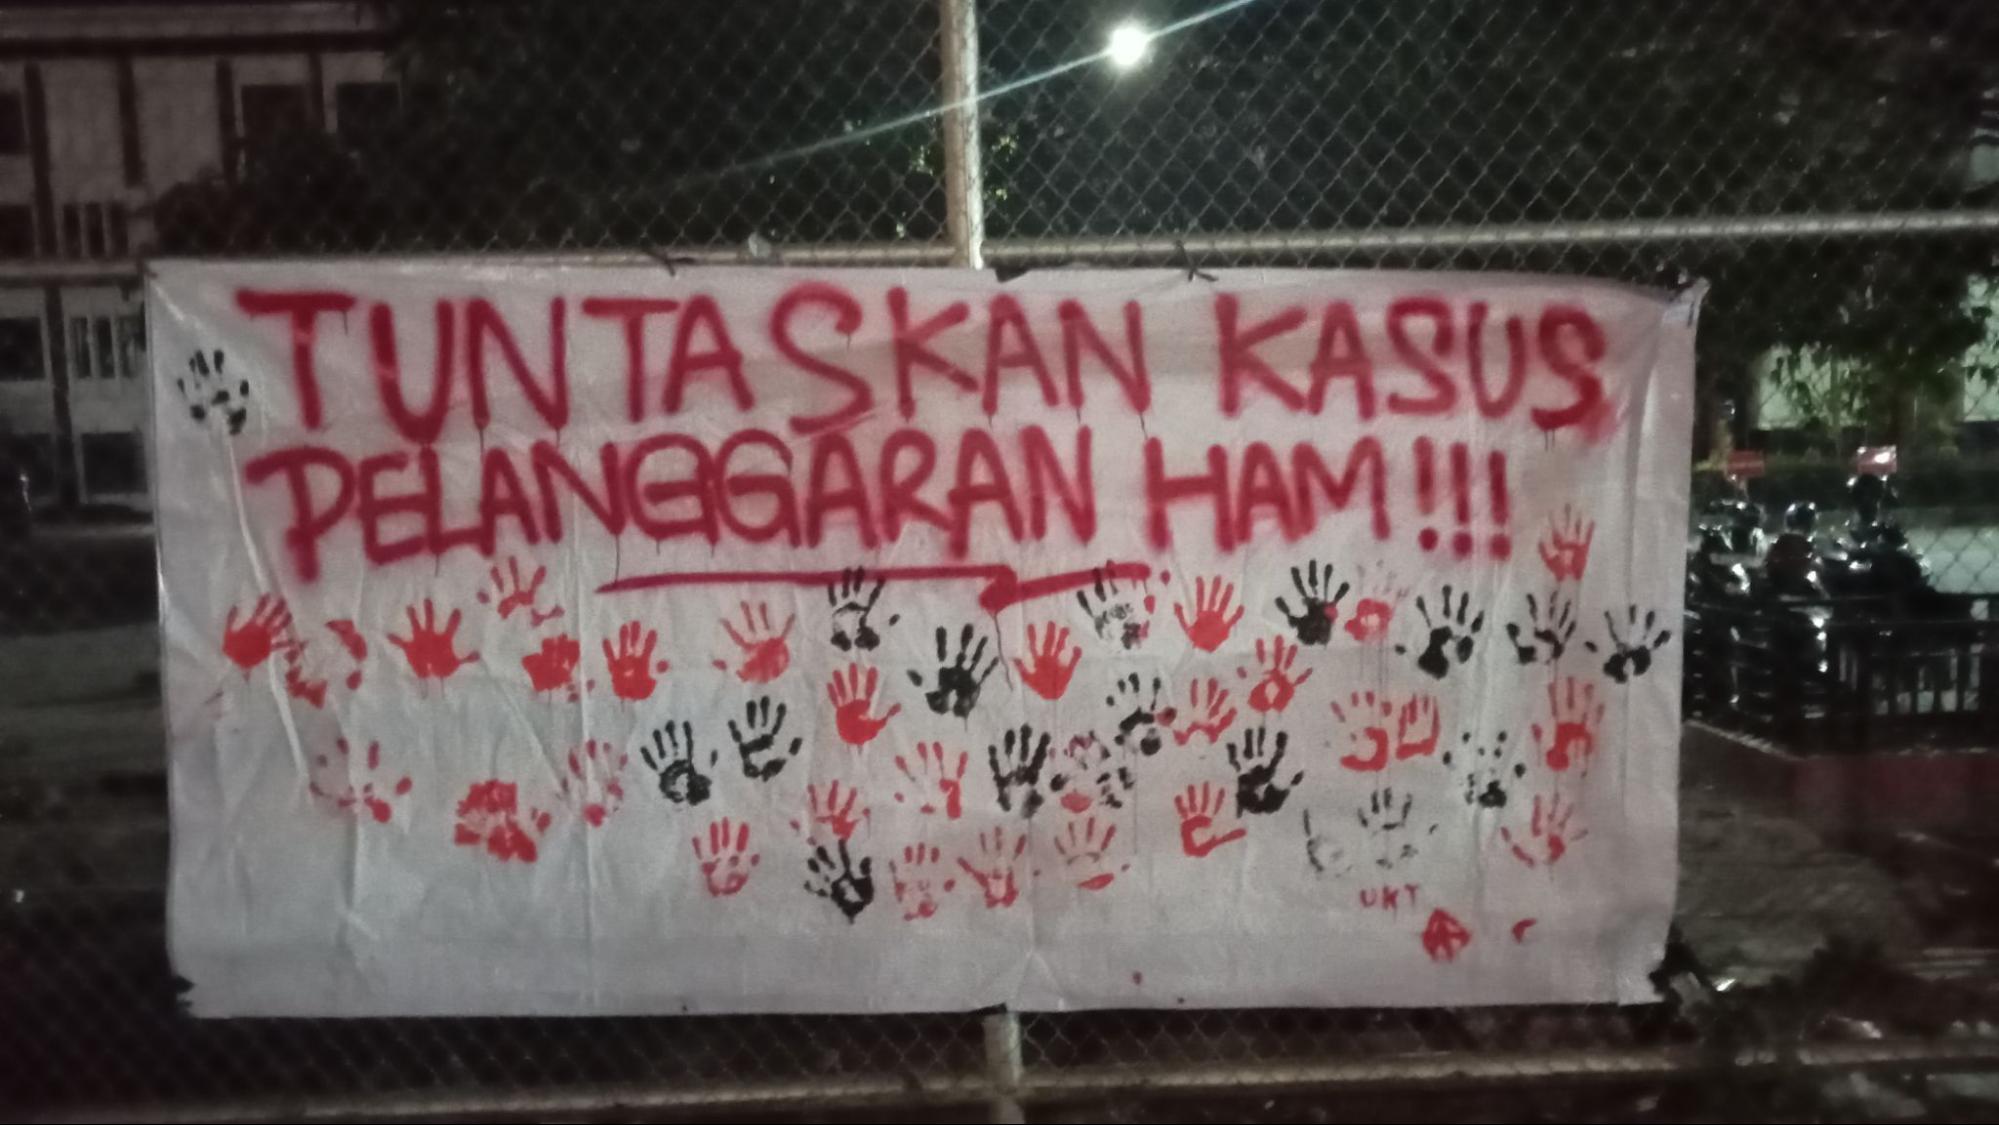 TUNTASKAN KASUS
PELANGGARAN HAM!!!
UKT